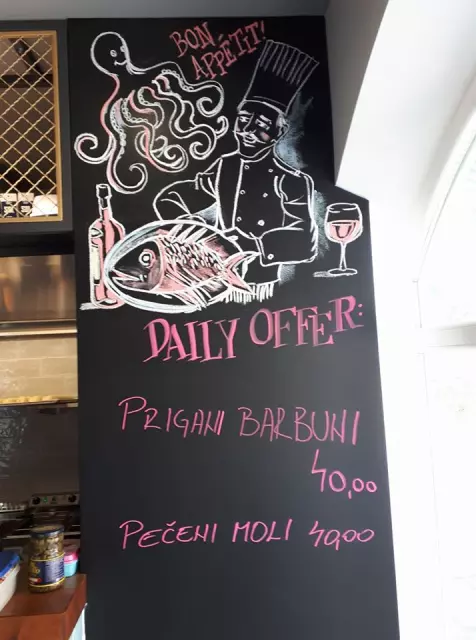 BON
APPÉTIT!
DAILY OFFER:
PRIGANI BARBUNI
40,00
PEČENI MOLI 40,00